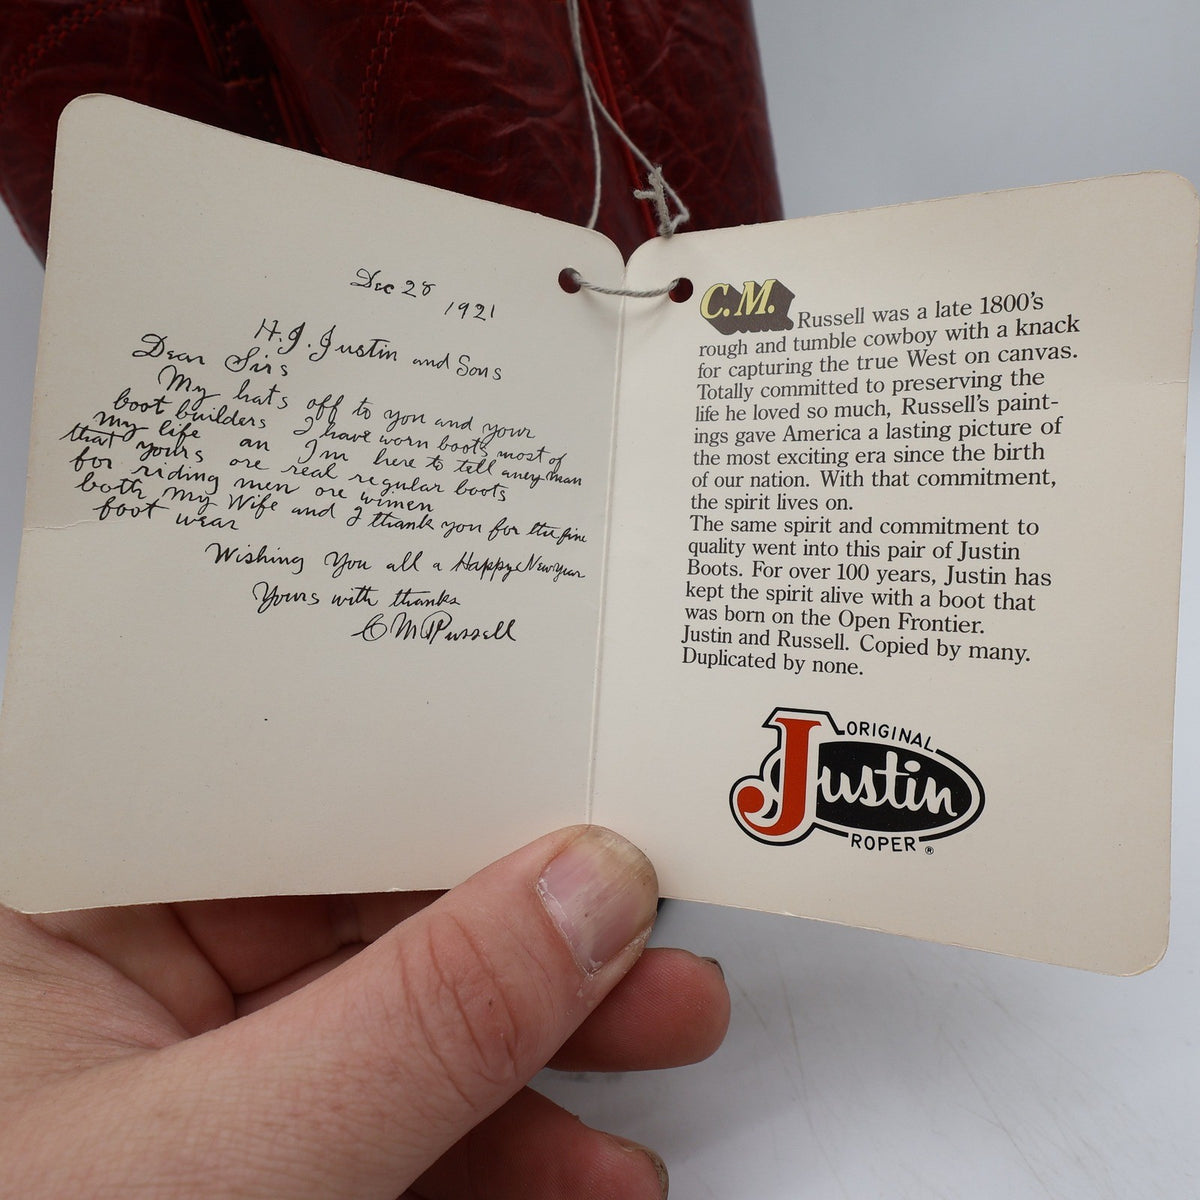 Dec 28
1921
H.J. Justin and Sons
Dear Sirs
My hats off to you and your
boot builders I have worn boots most of
my life an I'm here to tell aney man
that yours are real regular boots
for riding men ore wimen
both my Wife and I thank you for the fine
foot wear
Wishing You all a Happy New year
Yours with thanks
C M Russell
C.M. Russell was a late 1800's
rough and tumble cowboy with a knack
for capturing the true West on canvas.
Totally committed to preserving the
life he loved so much, Russell's paint-
ings gave America a lasting picture of
the most exciting era since the birth
of our nation. With that commitment,
the spirit lives on.
The same spirit and commitment to
quality went into this pair of Justin
Boots. For over 100 years, Justin has
kept the spirit alive with a boot that
was born on the Open Frontier.
Justin and Russell. Copied by many.
Duplicated by none.
ORIGINAL
Justin
ROPER ®